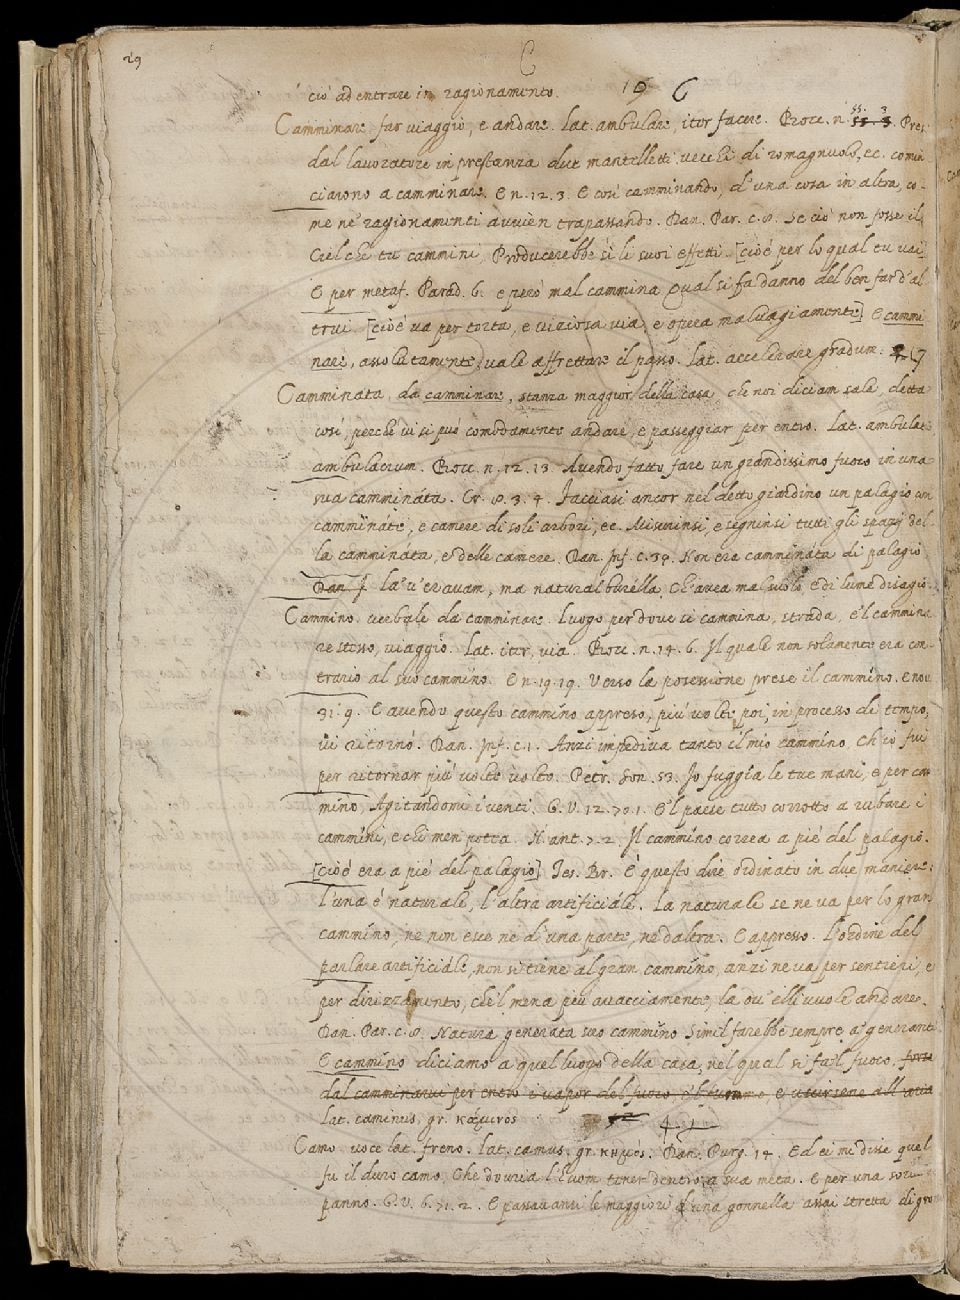 29
C
19 6
ciò ad entrare in ragionamento.
Camminare, far viaggio, e andare. Lat. ambulare, iter facere. Bocc. n. 55. 3. Pres
dal lavoratore in prestanza due mantelletti vecchi di romagnuolo, ec. comin
ciarono a camminare. E n. 12. 3. E così camminando, d'una cosa in altra, co-
me ne' ragionamenti avvien trapassando. Dan. Par. c. 8. Se ciò non fosse il
Ciel che tu cammini, Producerebbe sì li suoi effetti. [cioè per lo qual tu vai]
E per metaf. Parad. 6. e però mal cammina Qual si fa danno del ben far d'al
trui. [cioè va per torta, e viziosa via, e opera malvagiamente] E cammi
nare, assolutamente, vale affrettare il passo. Lat. accelerare gradum.
Camminata, da camminare, stanza maggior della casa che noi diciam sala, detta
così, perchè vi si può comodamente andare, e passeggiar per entro. Lat. ambulat
ambulacrum. Bocc. n. 12. 13 Avendo fatto fare un grandissimo fuoco in una
sua cammináta. Cr. 8. 3. 4. Facciasi ancor nel detto giardino un palagio con
cammináte, e camere di soli arbori, ec. Misurinsi, e segninsi tutti gli spazij del-
la cammináta, e delle camere. Dan. Inf. c. 34. Non era cammináta di palagio
Dan. I La 'v' eravam, ma natural burella, Ch'avea mal suolo, e di lume disagio.
Cammino. verbale da camminare. Luogo per dove si cammina, strada, e'l cammina
re stesso, viaggio. Lat. iter, via. Bocc. n. 14. 6. Il quale non solamente era con-
trario al suo cammino. E n. 19. 19. Verso la possessione prese il cammino. E nov
31. 9. E avendo questo cammino appreso, più volte poi, in processo di tempo,
vi ritornò. Dan. Inf. c. 1. Anzi impediva tanto il mio cammino, Ch'io fui
per ritornar più volte volto. Petr. Son. 53. Io fuggia le tue mani, e per cam
mino, Agitandomi i venti. G. V. 12. 70. 1. E'l paese tutto corrotto a rubare i
cammini, e chi men potea. N. ant. 7. 2. Il cammino correa a piè del palagio.
[cioè era a piè del palagio] Tes. Br. E questo dire ordinato in due maniere:
l'una è naturale, l'altra artificiále. La naturale se ne va per lo gran
cammino, ne non esce ne d'una parte, ne d'altra. E appresso. L'ordine del
parlare artificiále, non si tiene al gran cammino, anzi ne va per sentieri, e
per dirizzamento, che'l mena più avacciamente, la ov' elli vuole andare.
Dan. Par. c. 8. Natura generata suo cammino Simil farebbe sempre a' generanti
E cammino diciamo a quel luogo della casa, nel qual si fa il fuoco, forse
dal camminarvi per entro i vapor del fuoco e'l fummo, e uscirsene all'aria
Lat. caminus, gr. κάμινος
Camo. voce lat. freno. Lat. camus, gr. κημός. Dan. Purg. 14. Ed ei mi disse quel
fu il duro camo, Che dovria l'huom tener dentro a sua meta. E per una sor-
panno. G. V. 6. 71. 2. E passavansi le maggiori d'una gonnella assai stretta di gro